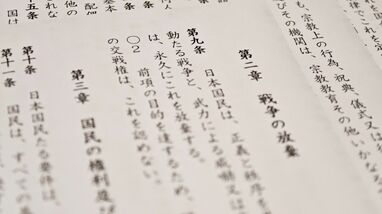 律でこれを定
も、宗教上の行為、祝典、儀式又は
びその機関は、宗教教育その他いかな
第二章　戦争の放棄
第九条　日本国民は、正義と秩序を
動たる戦争と、武力による威嚇又
は、永久にこれを放棄する。
〇2　前項の目的を達するため、
の交戦権は、これを認めない。
第三章　国民の権利及び
第十条　日本国民たる要件は、
第十一条　国民は、すべての
条
基本
配偶
他の
れな
五条
国は